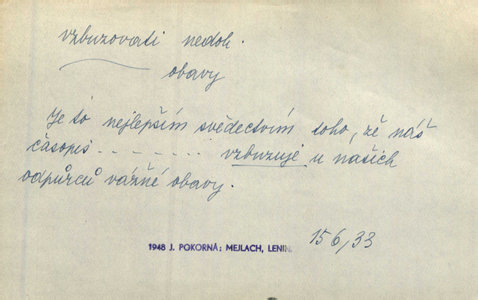 vzbuzovati nedok.
obavy
Je to nejlepším svědectvím toho, že náš
časopis - - - - - - - vzbuzuje u našich
odpůrců vážné obavy.
1948 J. POKORNÁ: MEJLACH, LENIN.
156/33